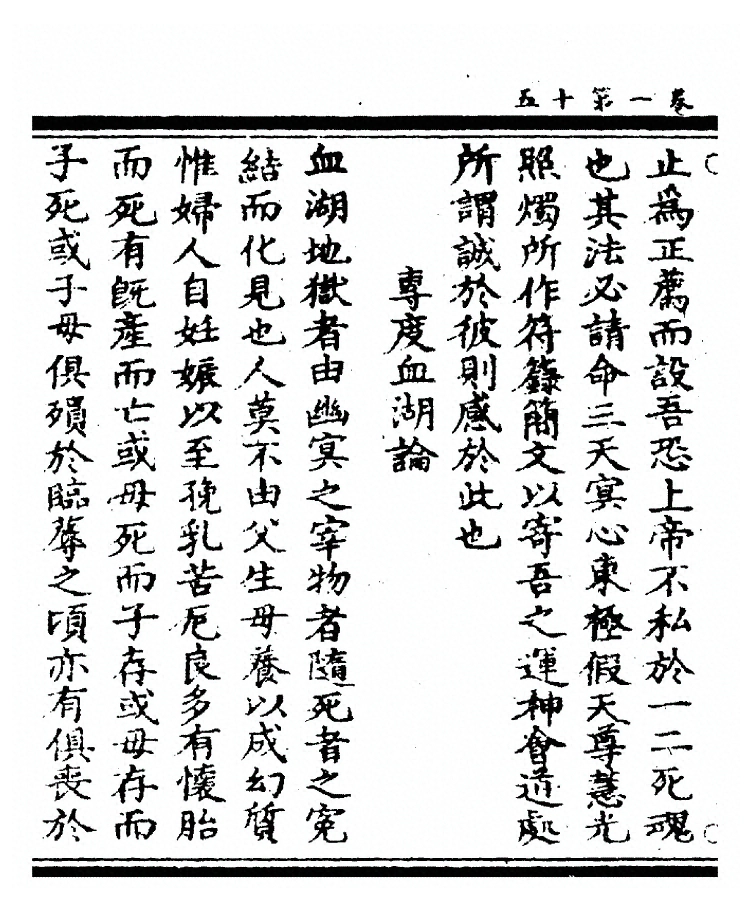 卷一第十五
止為正薦而設吾恐上帝不私於一二死魂
也其法必請命三天冥心東極假天尊慧光
照燭所作符籙簡文以寄吾之運神會道處
所謂誠於彼則感於此也
專度血湖論
血湖地獄者由幽冥之宰物者隨死者之冤
結而化見也人莫不由父生母養以成幻質
惟婦人自妊娠以至娩乳苦厄良多有懷胎
而死有旣產而亡或母死而子存或母存而
子死或子母俱殞於臨蓐之頃亦有俱喪於